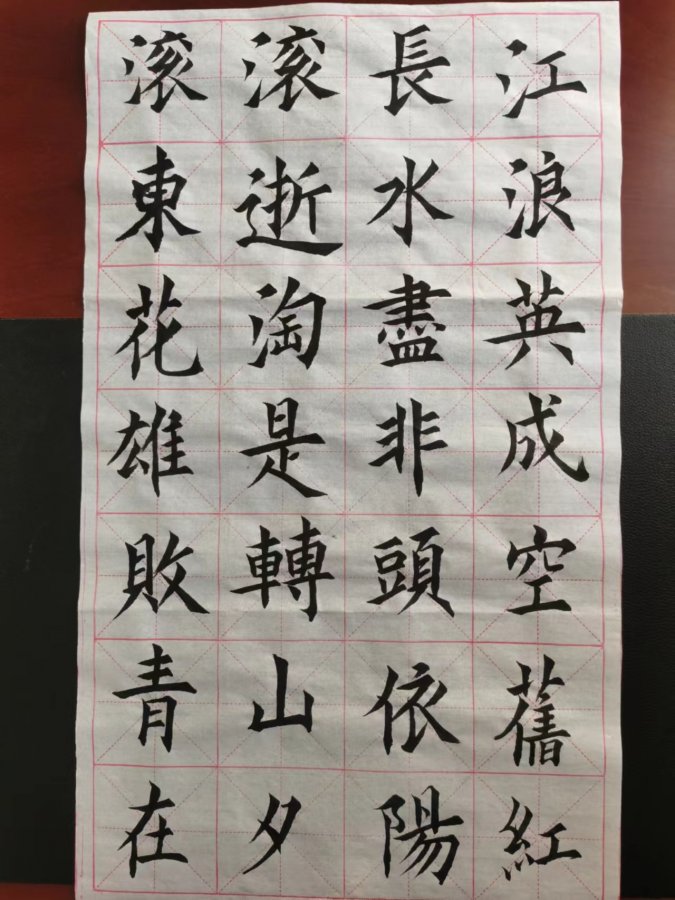 滚滚長江
東逝水浪
花淘盡英
雄是非成
敗轉頭空
青山依舊
在夕陽紅